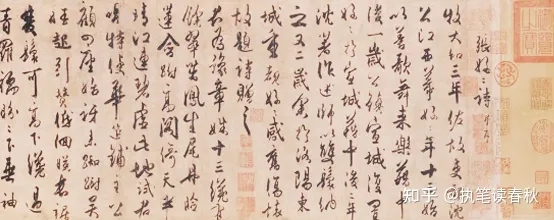 張好好詩
牧大和三年佐故吏部沈
公江西幕好好年十三
以善歌舞來樂籍中
後一歲公鎮宣城復置
好好於宣城籍中後二年
沈著作述師以雙鬟納
之又二歲余於洛陽東
城重覩好好感舊傷懷
故題詩贈之
君為豫章姝十三纔有
餘翠茁鳳生尾丹臉
蓮含跗高閣倚天半
晴江連碧虛此地試君
唱特使華筵鋪主公
顧四座始訝來踟躕吳
娃起引贊低佪映長裾
雙鬟可高下纔過
青羅襦盼盼下垂袖
知乎 @执笔读春秋